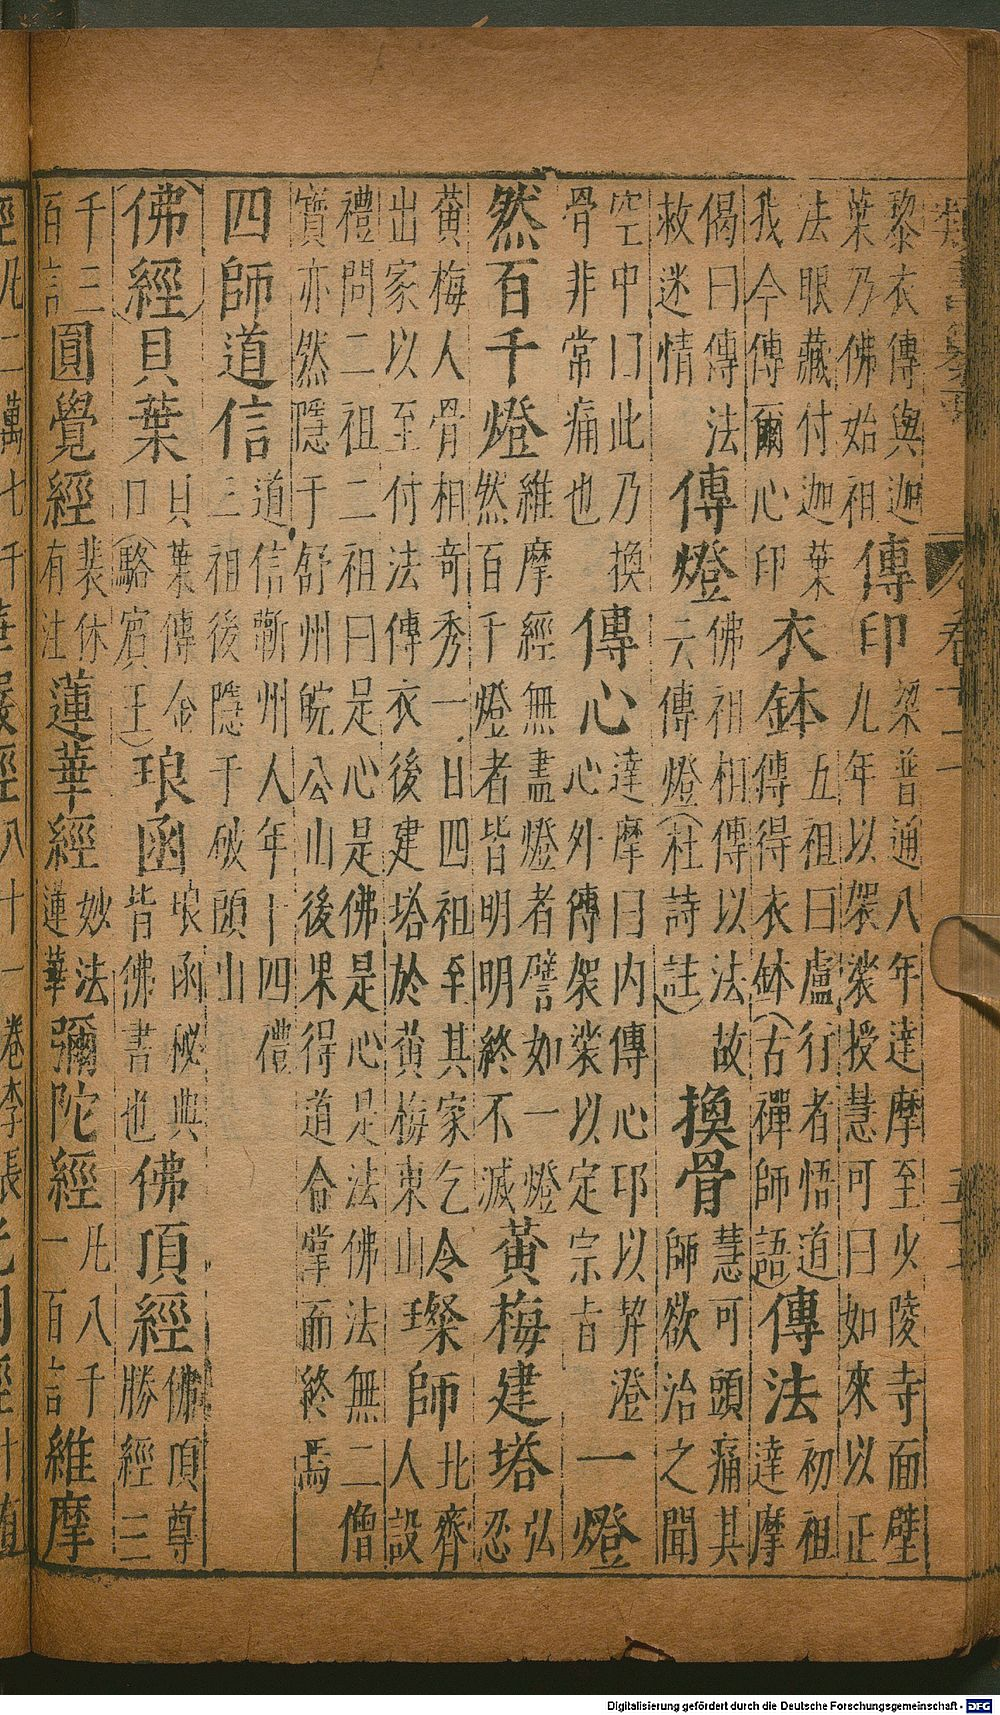 卷十二
黎衣傳與迦葉乃佛始祖傳印梁普通八年達摩至少陵寺面壁九年以袈裟授慧可曰如來以正
法眼藏付迦葉我今傳爾心印衣鉢五祖曰盧行者悟道傳得衣鉢（古禪師語）傳法初祖達摩
偈曰傳法救迷情傳燈佛祖相傳以法故云傳燈（杜詩註）換骨慧可頭痛其師欲治之聞
空中曰此乃換骨非常痛也傳心達摩曰內傳心印以契澄心外傳袈裟以定宗旨一燈
然百千燈維摩經無盡燈者譬如一燈然百千燈者皆明明終不滅黃梅建塔弘忍
黃梅人骨相奇秀一日四祖至其家乞令出家以至付法傳衣後建塔於黃梅東山璨師北齊人設
禮問二祖二祖曰是心是佛是心是法佛法無二僧寶亦然隱于舒州皖公山後果得道合掌而終焉
四師道信道信蘄州人年十四禮三祖後隱于破頭山
（佛經）貝葉貝葉傳金口（駱賓王）琅函琅函秘典皆佛書也佛頂經佛頂尊勝經三
千三百言圓覺經裴休有注蓮華經妙法蓮華彌陀經凡八千一百言維摩
經凡二萬七千華嚴經八十一卷李長
Digitalisierung gefördert durch die Deutsche Forschungsgemeinschaft - DFG